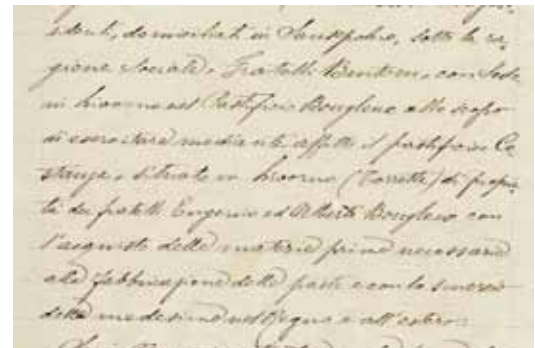 identi, domiciliati in Sansepolcro, sotto la ra,
gione sociale, Fratelli Buitoni, con Sede
in Livorno nel Pastificio Bougleux allo scopo
di esercitare mediante affitto il pastificio Co
stanza, situato in Livorno (Torretta) di proprie
tà dei fratelli Eugenio ed Alberto Bougleux con
l'acquisto delle materie prime necessarie
alla fabbricazione delle paste e con lo smercio
delle medesime nel Regno e all'estero: